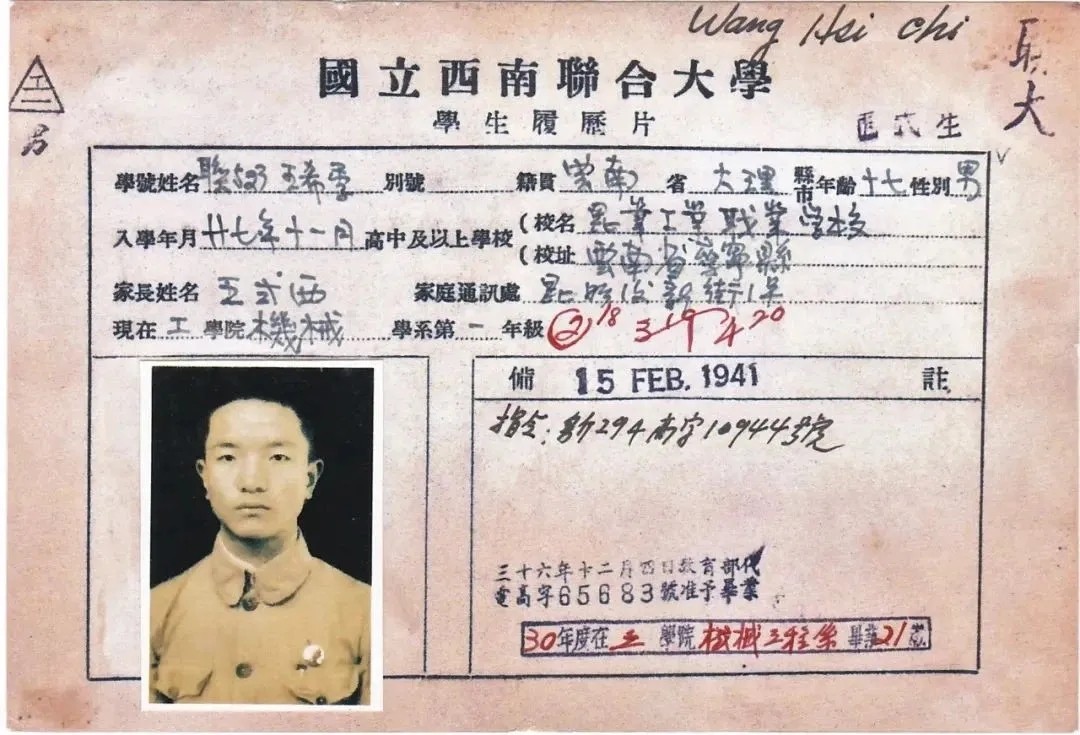 Wang Hsi Chi
工
男
國立西南聯合大學
學生履歷片
生
大
學號姓名 聯523 王希季 別號 籍貫 雲南 省 大理 縣市 年齡 十七 性別 男
入學年月 廿七年十一月 高中及以上學校 (校名 昆華工業職業学校
(校址 雲南省
家長姓名 王式西 家庭通訊處 昆明
現在 工 學院 機械 學系第 一 年級 ② 18 3 19 4 20
備 15 FEB. 1941 註
指令:新294高字10944號
三十六年十二月四日教育部代
電高字65683號准予畢業
30年度在 工 學院 機械工程系 畢業 21